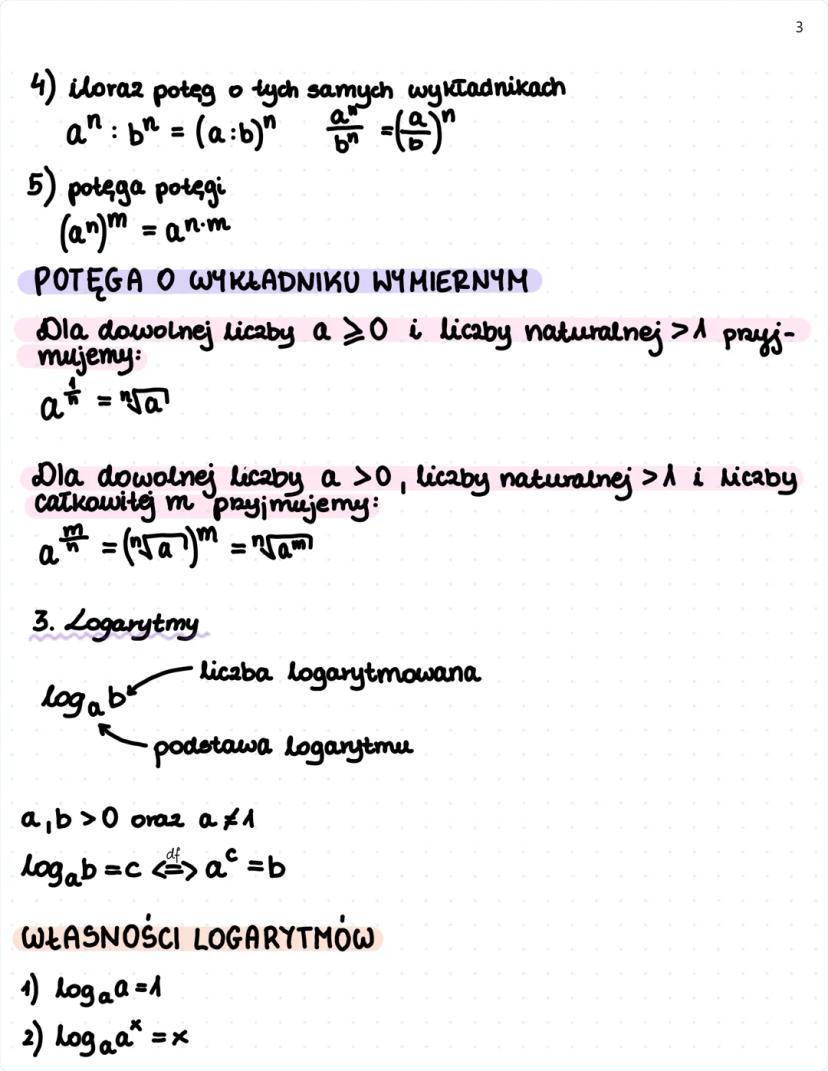 3
4) iloraz potęg o tych samych wykładnikach
aⁿ : bⁿ = (a:b)ⁿ   aⁿ/bⁿ = (a/b)ⁿ
5) potęga potęgi
(aⁿ)ᵐ = aⁿ·ᵐ
POTĘGA O WYKŁADNIKU WYMIERNYM
Dla dowolnej liczby a ⩾ 0 i liczby naturalnej > 1 przyj-
mujemy:
a^(1/n) = ⁿ√a
Dla dowolnej liczby a > 0, liczby naturalnej > 1 i liczby
całkowitej m przyjmujemy:
a^(m/n) = (ⁿ√a)ᵐ = ⁿ√aᵐ
3. Logarytmy
liczba logarytmowana
logₐb
podstawa logarytmu
a, b > 0 oraz a ≠ 1
logₐb = c <=> df aᶜ = b
WŁASNOŚCI LOGARYTMÓW
1) logₐa = 1
2) logₐaˣ = x